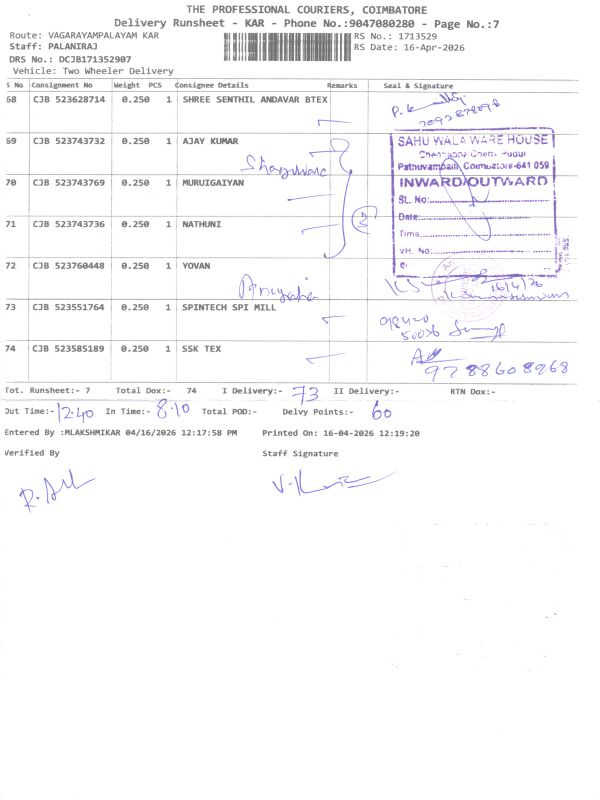 THE PROFESSIONAL COURIERS, COIMBATORE
Delivery Runsheet - KAR - Phone No.:9047080280 - Page No.:7
Route: VAGARAYAMPALAYAM KAR
RS No.: 1713529
Staff: PALANIRAJ
RS Date: 16-Apr-2026
DRS No.: DCJB171352907
Vehicle: Two Wheeler Delivery
S No Consignment No Weight PCS Consignee Details Remarks Seal & Signature
68 CJB 523628714 0.250 1 SHREE SENTHIL ANDAVAR BTEX
69 CJB 523743732 0.250 1 AJAY KUMAR
70 CJB 523743769 0.250 1 MURUIGAIYAN
71 CJB 523743736 0.250 1 NATHUNI
SAHU WALA WARE HOUSE
Pathuvampalli, Coimbatore-641 059
INWARD/OUTWARD
SL. No:
Date:
Time
VH. No:
72 CJB 523760448 0.250 1 YOVAN
16/4/26
73 CJB 523551764 0.250 1 SPINTECH SPI MILL
74 CJB 523585189 0.250 1 SSK TEX
9788608968
Tot. Runsheet:- 7 Total Dox:- 74 I Delivery:- 73 II Delivery:- RTN Dox:-
Out Time:- 12.40 In Time:- 8.10 Total POD:- Delvy Points:- 60
Entered By :MLAKSHMIKAR 04/16/2026 12:17:58 PM Printed On: 16-04-2026 12:19:20
Verified By Staff Signature